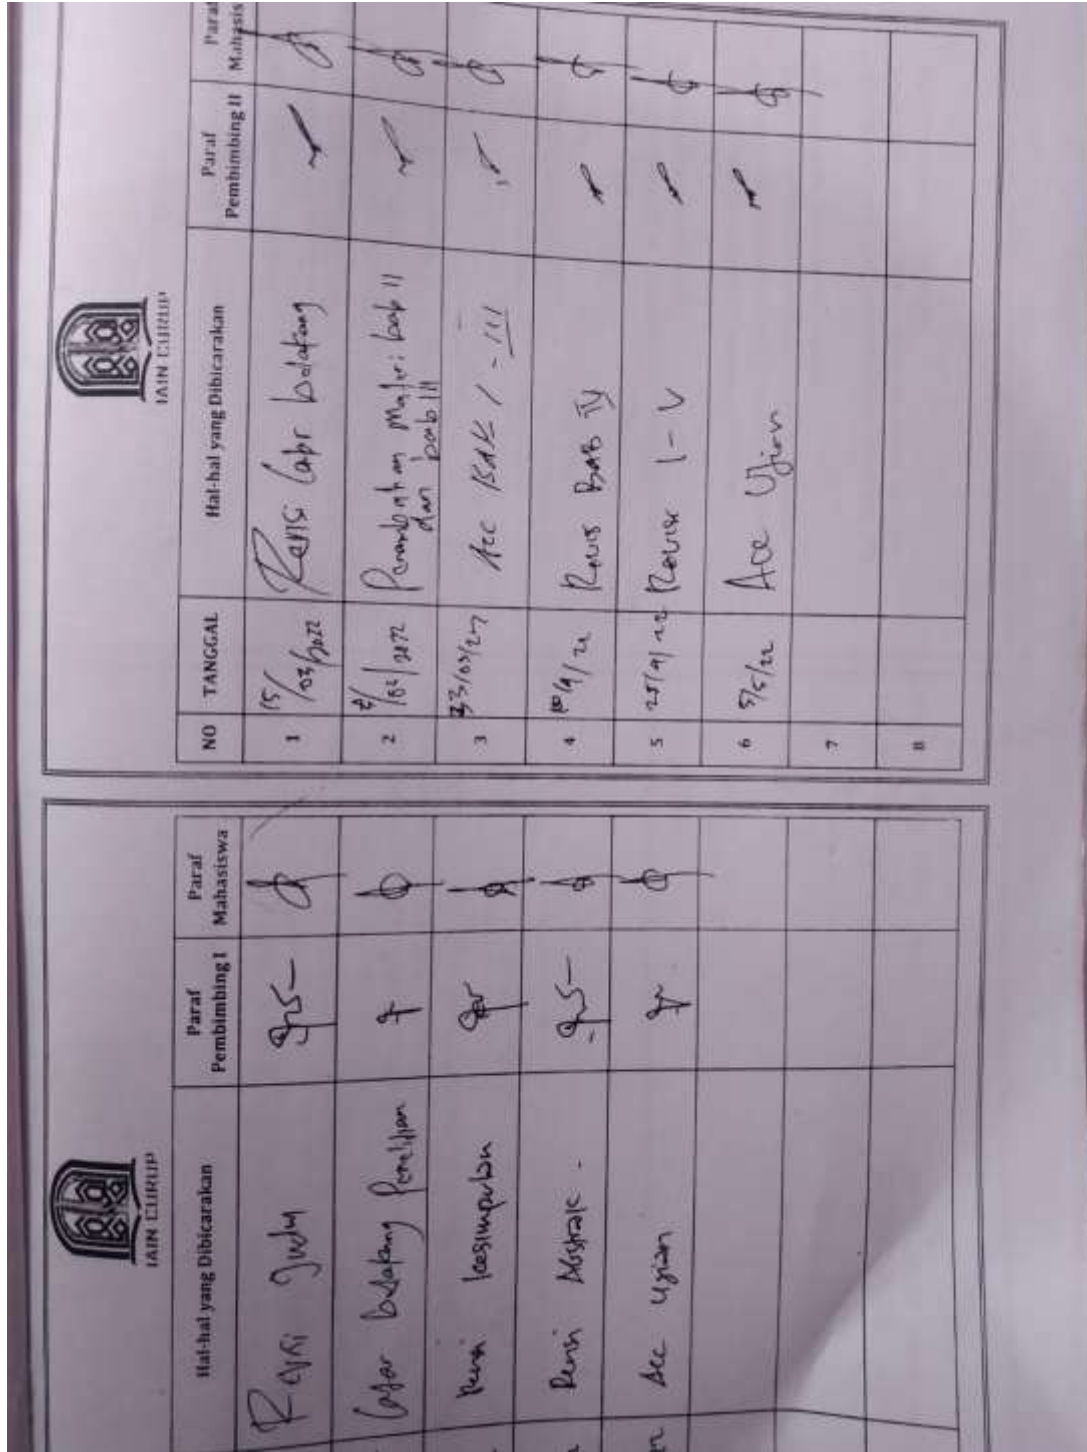 IAIN CURUP
Hal-hal yang Dibicarakan
Paraf
Pembimbing I
Paraf
Mahasiswa
Revisi Judul
Latar belakang Penelitian
Revisi kesimpulan
Revisi Abstrak -
Acc Ujian
IAIN CURUP
NO
TANGGAL
Hal-hal yang Dibicarakan
Paraf
Pembimbing II
Paraf
Mahasis
1
15/03/2022
Revisi latar belakang
2
Penambahan Materi bab II
dan bab III
3
Acc BAB I - III
4
Revisi BAB IV
5
Revisi I - V
6
Acc Ujian
7
8